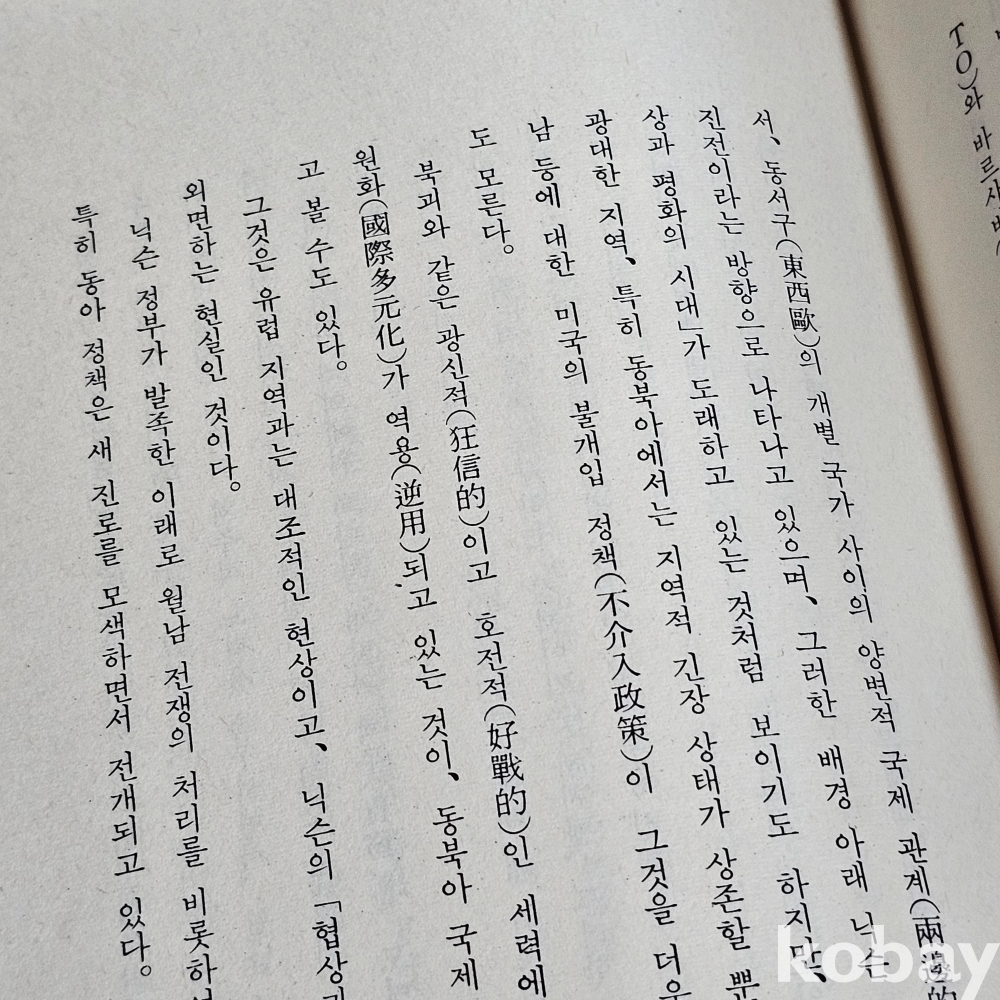 TO)와 바르샤바
서、 동서구(東西歐)의 개별 국가 사이의 양변적 국제 관계(兩邊的
진전이라는 방향으로 나타나고 있으며、 그러한 배경 아래 닉슨
상과 평화의 시대」가 도래하고 있는 것처럼 보이기도 하지만、
광대한 지역、 특히 동북아에서는 지역적 긴장 상태가 상존할 뿐
남 등에 대한 미국의 불개입 정책(不介入政策)이 그것을 더욱
도 모른다。
북괴와 같은 광신적(狂信的)이고 호전적(好戰的)인 세력에
원화(國際多元化)가 역용(逆用)되고 있는 것이、 동북아 국제
고 볼 수도 있다。
그것은 유럽 지역과는 대조적인 현상이고、 닉슨의 「협상과
외면하는 현실인 것이다。
닉슨 정부가 발족한 이래로 월남 전쟁의 처리를 비롯하
특히 동아 정책은 새 진로를 모색하면서 전개되고 있다。
kobay